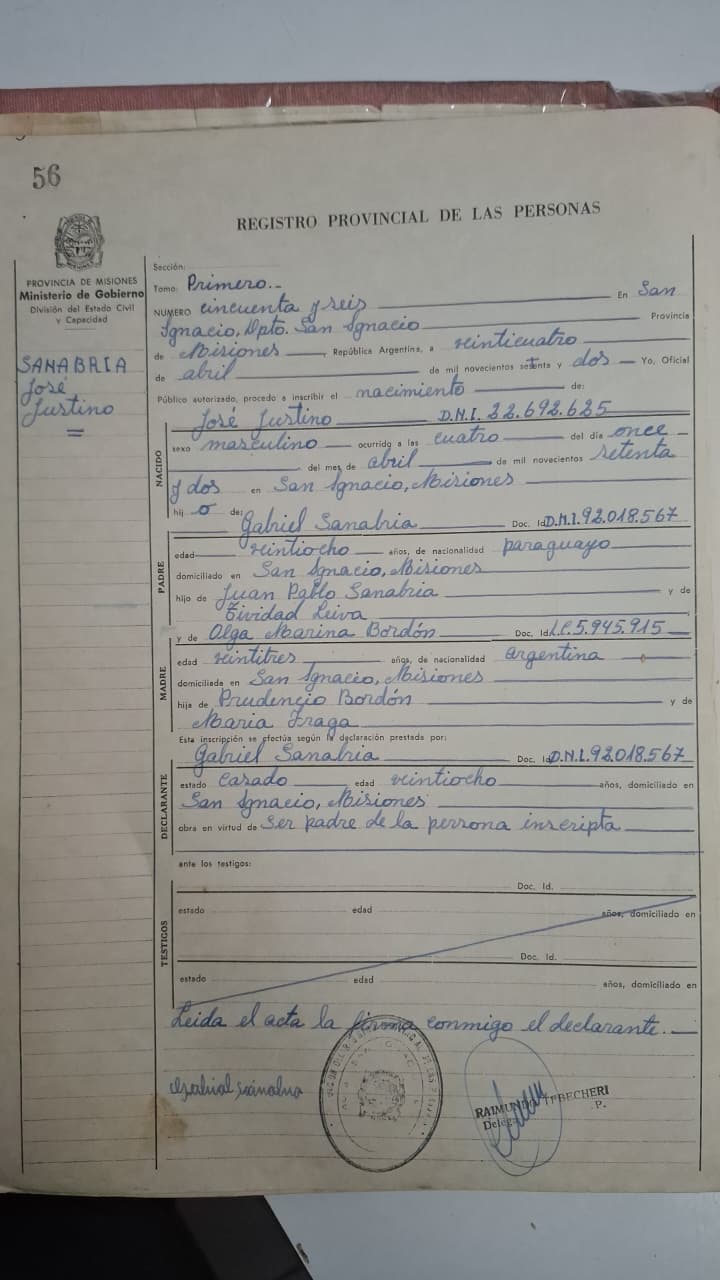 56
REGISTRO PROVINCIAL DE LAS PERSONAS
PROVINCIA DE MISIONES
Ministerio de Gobierno
División del Estado Civil
y Capacidad
SANABRIA
José
Justino
Sección:
Tomo: Primero.-
NUMERO cincuenta y seis En San
Ignacio, Dpto. San Ignacio Provincia
de Misiones, República Argentina, a veinticuatro
de abril de mil novecientos setenta y dos Yo, Oficial
Público autorizado, procedo a inscribir el nacimiento de:
NACIDO
José Justino D.N.I. 22.692.625
sexo masculino ocurrido a las cuatro del día once
del mes de abril de mil novecientos setenta
y dos en San Ignacio, Misiones
hijo de:
PADRE
Gabriel Sanabria Doc. Id. D.N.I. 92.018.567
edad veintiocho años, de nacionalidad paraguayo
domiciliado en San Ignacio, Misiones
hijo de Juan Pablo Sanabria y de
Leiva
MADRE
y de Olga Marina Bordón Doc. Id. L.C. 5.945.915
edad veintitres años, de nacionalidad argentina
domiciliada en San Ignacio, Misiones
hija de Prudencio Bordón y de
Maria Fraga
Esta inscripción se efectúa según la declaración prestada por:
DECLARANTE
Gabriel Sanabria Doc. Id. D.N.I. 92.018.567
estado casado edad veintiocho años, domiciliado en
San Ignacio, Misiones
obra en virtud de ser padre de la persona inscripta
ante los testigos:
TESTIGOS
Doc. Id.
estado edad años, domiciliado en
Doc. Id.
estado edad años, domiciliado en
Leida el acta la firma conmigo el declarante.-
RAIMUNDO TEBECHERI